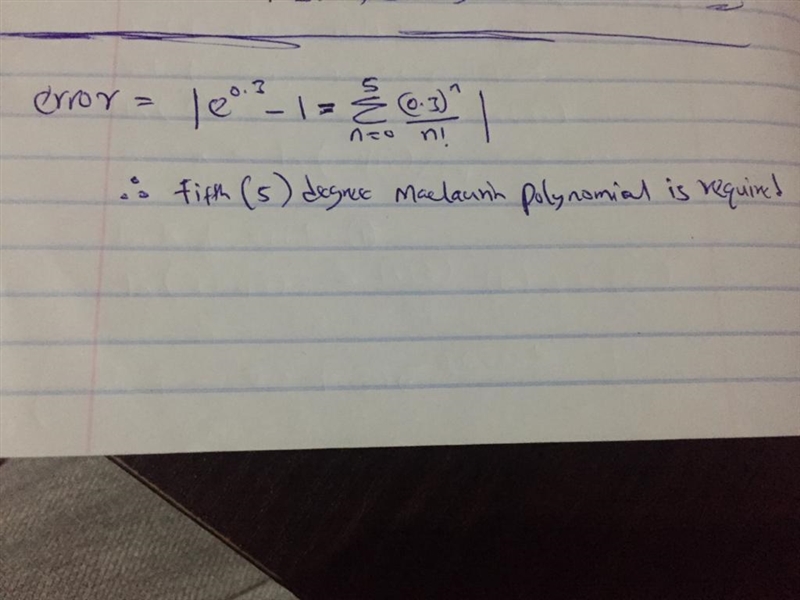 error = | e^0.3 - 1 = 5∑n=0 (0.3)^n/n! |
∴ fifth (5) degree Maclaurin polynomial is required